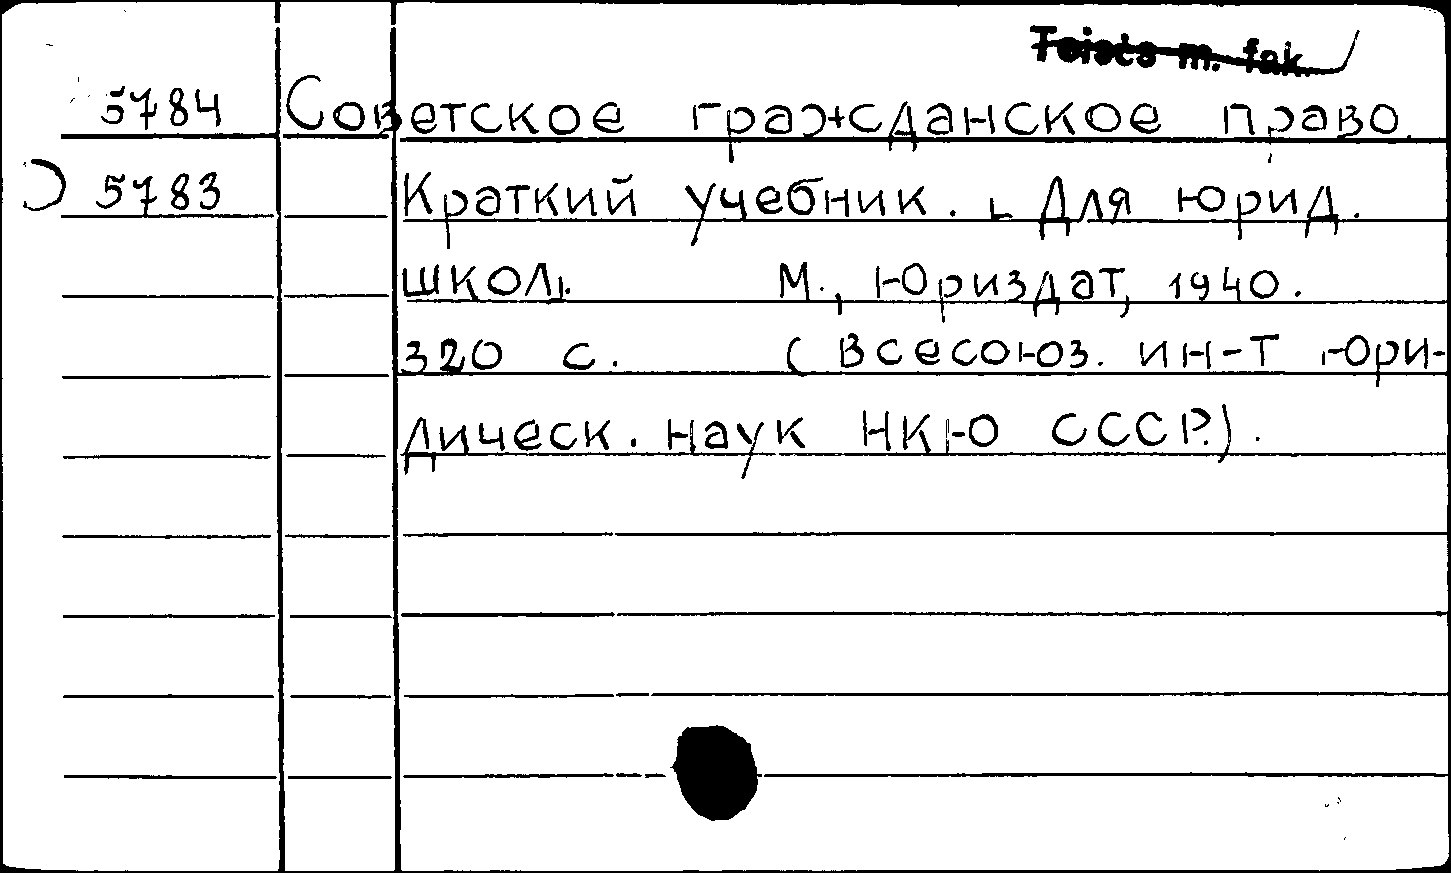 Teists m. fak.
5784 Советское гражданское право.
5783 Краткий учебник. Для юрид.
школ. М., Юриздат, 1940.
320 с. (Всесоюз. ин-т юри-
дическ. наук НКЮ СССР.).